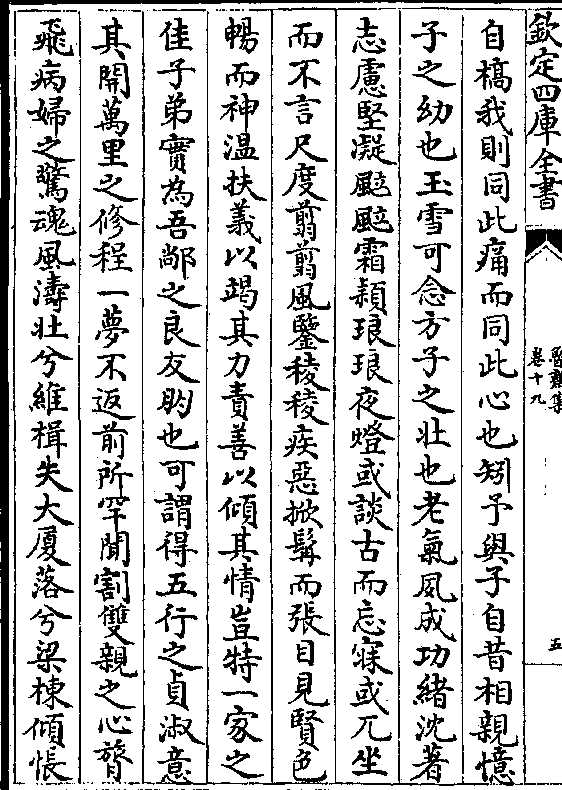 欽定四庫全書
卷十九
五
自槁我則同此痛而同此心也矧予與子自昔相親憶
子之幼也玉雪可念方子之壯也老氣夙成功緒沈著
志慮堅凝颼颼霜穎琅琅夜燈或談古而忘寐或兀坐
而不言尺度翦翦風鑒稜稜疾惡掀髯而張目見賢色
暢而神温扶義以竭其力責善以傾其情豈特一家之
佳子弟實為吾鄰之良友朋也可謂得五行之貞淑意
其開萬里之修程一夢不返前所罕聞割雙親之心膂
飛病婦之驚魂風濤壯兮維楫失大厦落兮梁棟傾悵